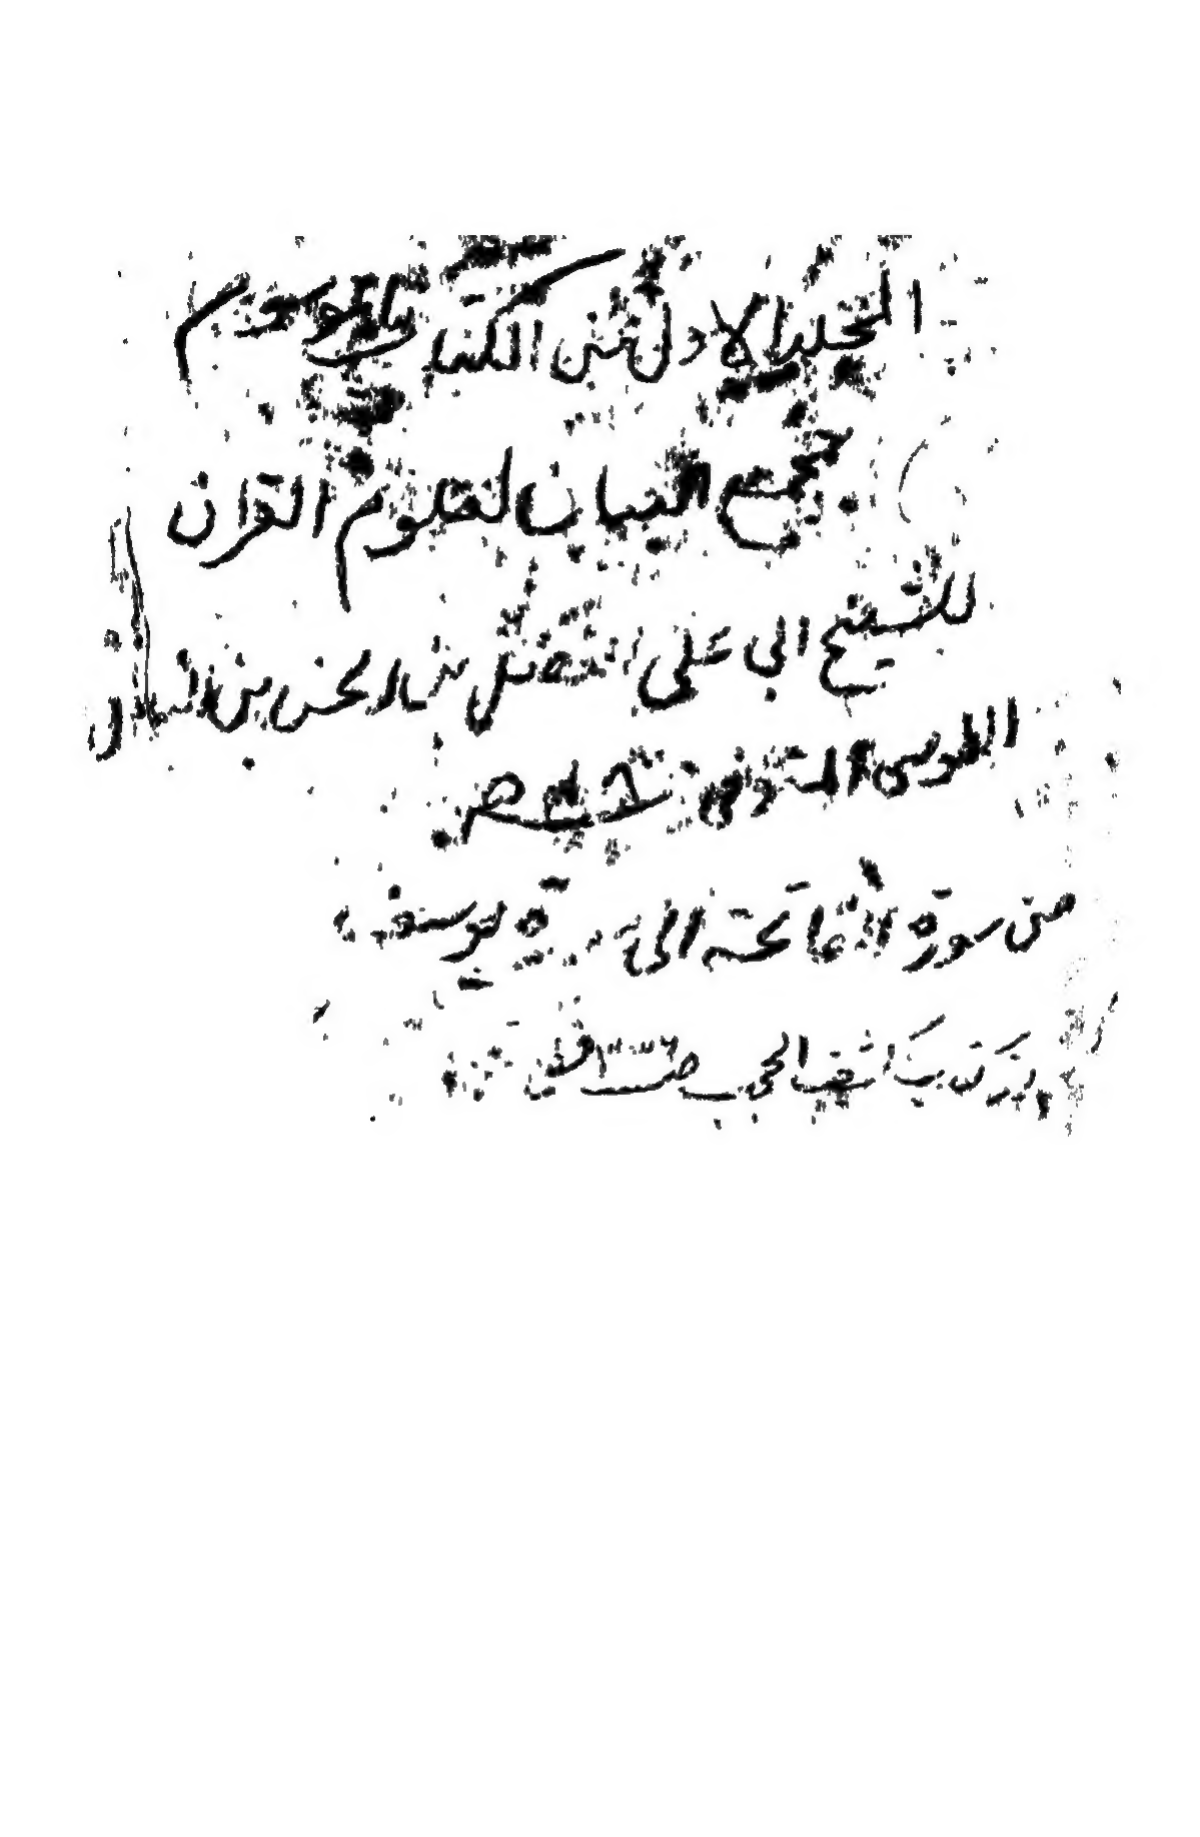 المجلد الاول من الكتاب الموسوم
بمجمع البيان لعلوم القران
للشيخ ابي على الفضل بن الحسن بن الفضل
الطوسى المتوفى
من سورة الفاتحة الى سورة يوسف
كشف الحجب